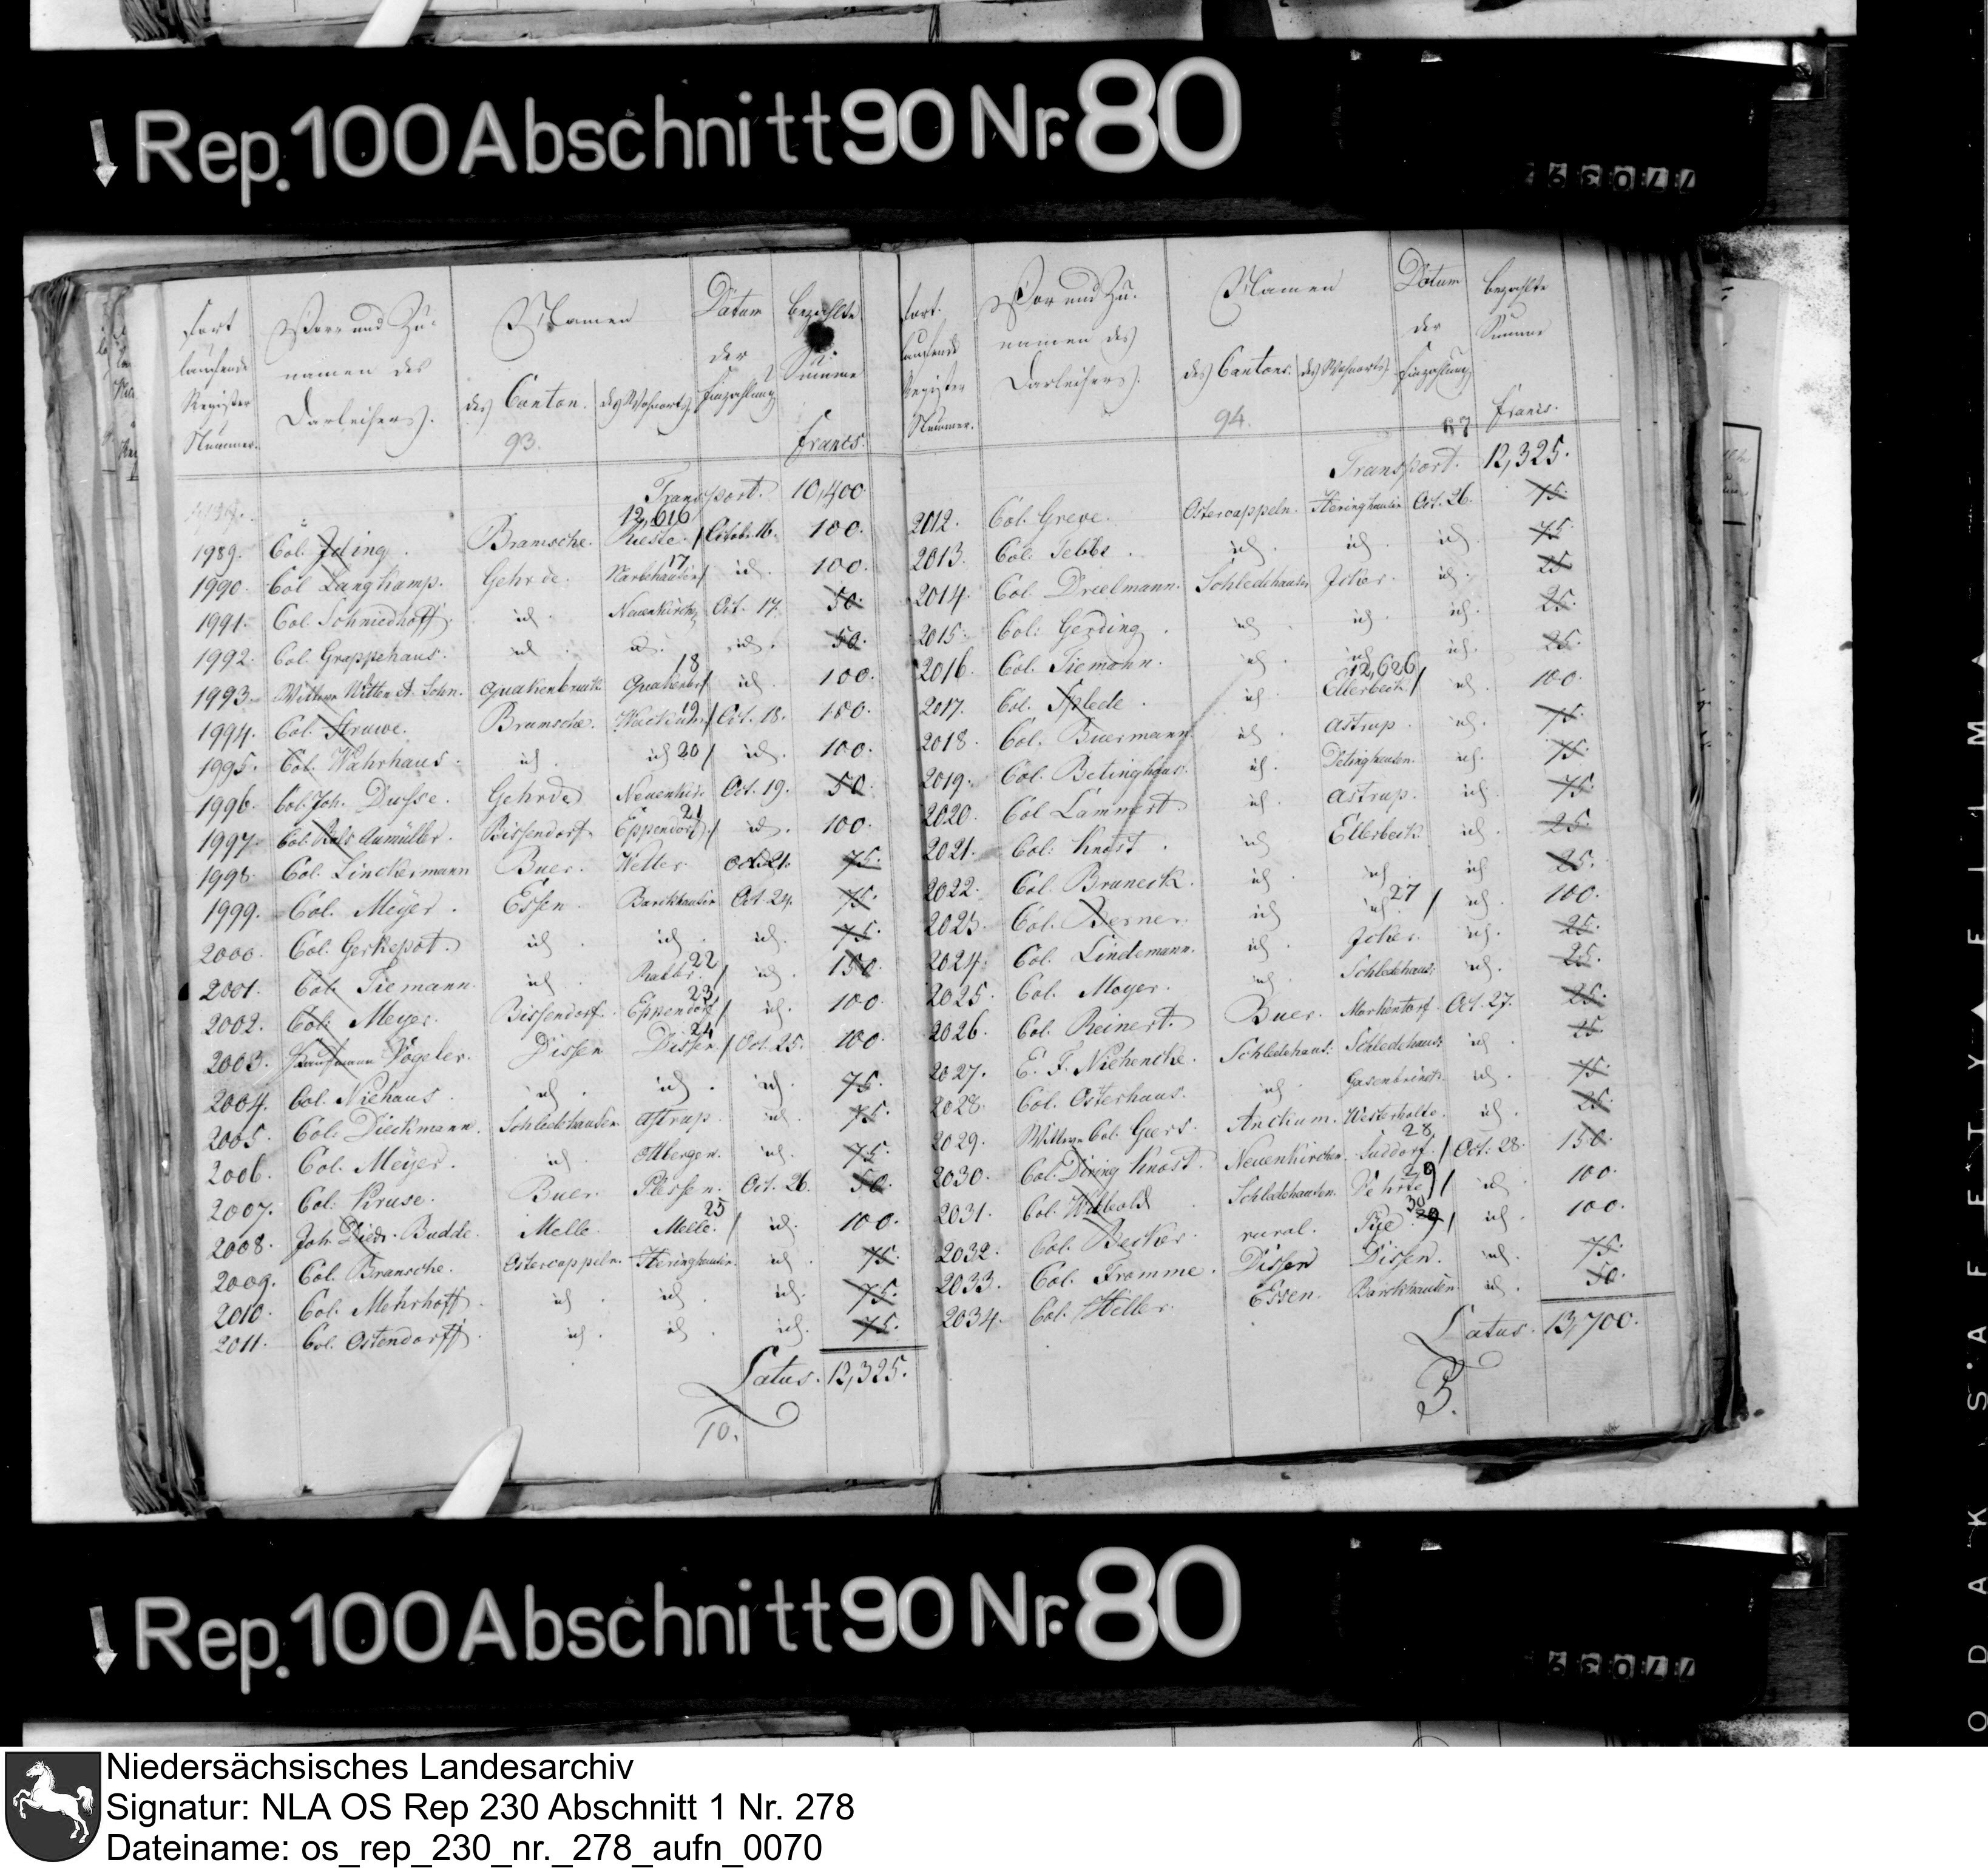 Rep. 100 Abschnitt 90 Nr. 80
Fort laufende Register Nummer.
Vor- und Zu- namen des Darleihers.
Namen
des Canton. des Wohnorts
Datum der Einzahlung
bezahlte Summe
francs.
93.
Transport. 10,400
12,616
1989. Col. Ising. Bramsche. Rieste. / Octob. 16. 100.
17
1990. Col. Langhamp. Gehrde. / id. 100.
1991. Col. Schniedhoff. id. Neuenkirch Oct. 17. 50.
1992. Col. Grappehaus. id. id. id. 50.
18
1993. Wittwe Witten & Sohn. Quakenbrueck Quakenbr / id. 100.
19
1994. Col. Struwe. Bramsche. / Oct. 18. 100.
1995. Col. Wahrhaus. id. id 20 / id. 100.
1996. Col. Joh. Dusse. Gehrde Neuenkir. Oct. 19. 50.
21
1997. Col. Aumüller. Bissendorf Eppendorf. / id. 100.
1998. Col. Linckermann Buer. Wetter. Oct. 21. 75.
1999. Col. Meyer. Essen. Barckhausen Oct. 24. 75.
2000. Col. Gerkepot. id. id. id. 75.
22
2001. Col. Tiemann. id. / id. 150.
23
2002. Col. Meyer. Bissendorf. Eppendorf / id. 100
24
2003. Kaufmann Vögeler. Dissen Dissen / Oct. 25. 100.
2004. Col. Niehaus. id. id. id. 75.
2005. Col. Dieckmann. Schledehausen Astrup. id. 75.
2006. Col. Meyer. id. id. 75.
2007. Col. Kruse. Buer. Oct. 26. 50.
25
2008. Joh. Died. Budde. Melle. Melle. / id. 100.
2009. Col. Bransche. Ostercappeln. Heringhausen. id. 75.
2010. Col. Mehrhoff. id. id. id. 75.
2011. Col. Ostendorff. id. id. id. 75.
Latus. 12,325.
10.
Fort- laufende Register Nummer.
Vor und Zu- namen des Darleihers.
Namen
des Cantons. des Wohnorts
Datum der Einzahlung
bezahlte Summe
francs.
94.
Transport. 12,325.
2012. Col. Greve. Ostercappeln. Heringhausen Oct. 26. 75.
2013. Col. Tebbe. id. id. id. 75.
2014. Col. Dreelmann. Schledehausen Jeker. id. 25
2015. Col. Gerding. id. id. id. 25.
2016. Col. Tiemann. id. id. id. 25.
12,626
2017. Col. Splede. id. Ellerbeck / id. 100.
2018. Col. Buermann. id. Astrup. id. 75.
2019. Col. Betinghaus. id. id. 75.
2020. Col. Lammert. id. Astrup. id. 75.
2021. Col. Knost. id. Ellerbeck id. 25.
2022. Col. Bruneck. id. id. id. 25.
27
2023. Col. Berner. id. id. / id. 100.
2024. Col. Lindemann. id. Jeker. id. 25.
2025. Col. Meyer. id. Schledehaus: id. 25.
2026. Col. Reinert. Buer. Markendorf. Oct. 27. 25.
2027. E. F. Niehencke. Schledehaus: Schledehaus: id. 25
2028. Col. Osterhaus. id. id. 75.
2029. Wittwe Col. Giers. Anckum. Westerholte. id. 25.
28
2030. Col. Knost. Neuenkirchen. Suddorf. / Oct. 28. 150.
29
2031. Col. Wibbold Schledehausen. Vehrte / id. 100
30
2032. Col. Becker. rural. Pye. / id. 100.
2033. Col. Fromme. Dissen Dissen. id. 75.
2034. Col. Heller. Essen. Barckhausen. id. 50.
Latus. 13,700.
Rep. 100 Abschnitt 90 Nr. 80
Niedersächsisches Landesarchiv
Signatur: NLA OS Rep 230 Abschnitt 1 Nr. 278
Dateiname: os_rep_230_nr._278_aufn_0070
KODAK SAFETY FILM